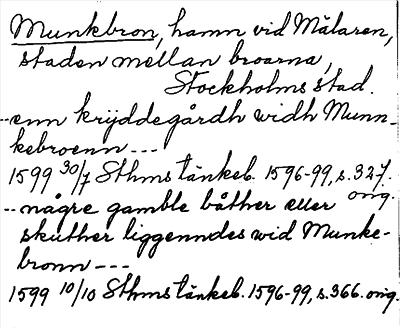 Munkbron, hamn vid Mälaren,
staden mellan broarna,
Stockholms stad.
--enn krÿddegårdh widh Munn-
kebroenn ---
1599 30/7 Sthms tänkeb. 1596-99, s. 327.
orig.
--någre gamble båther eller
skuther liggenndes wid Munke-
bronn ---
1599 10/10 Sthms tänkeb. 1596-99, s. 366. orig.